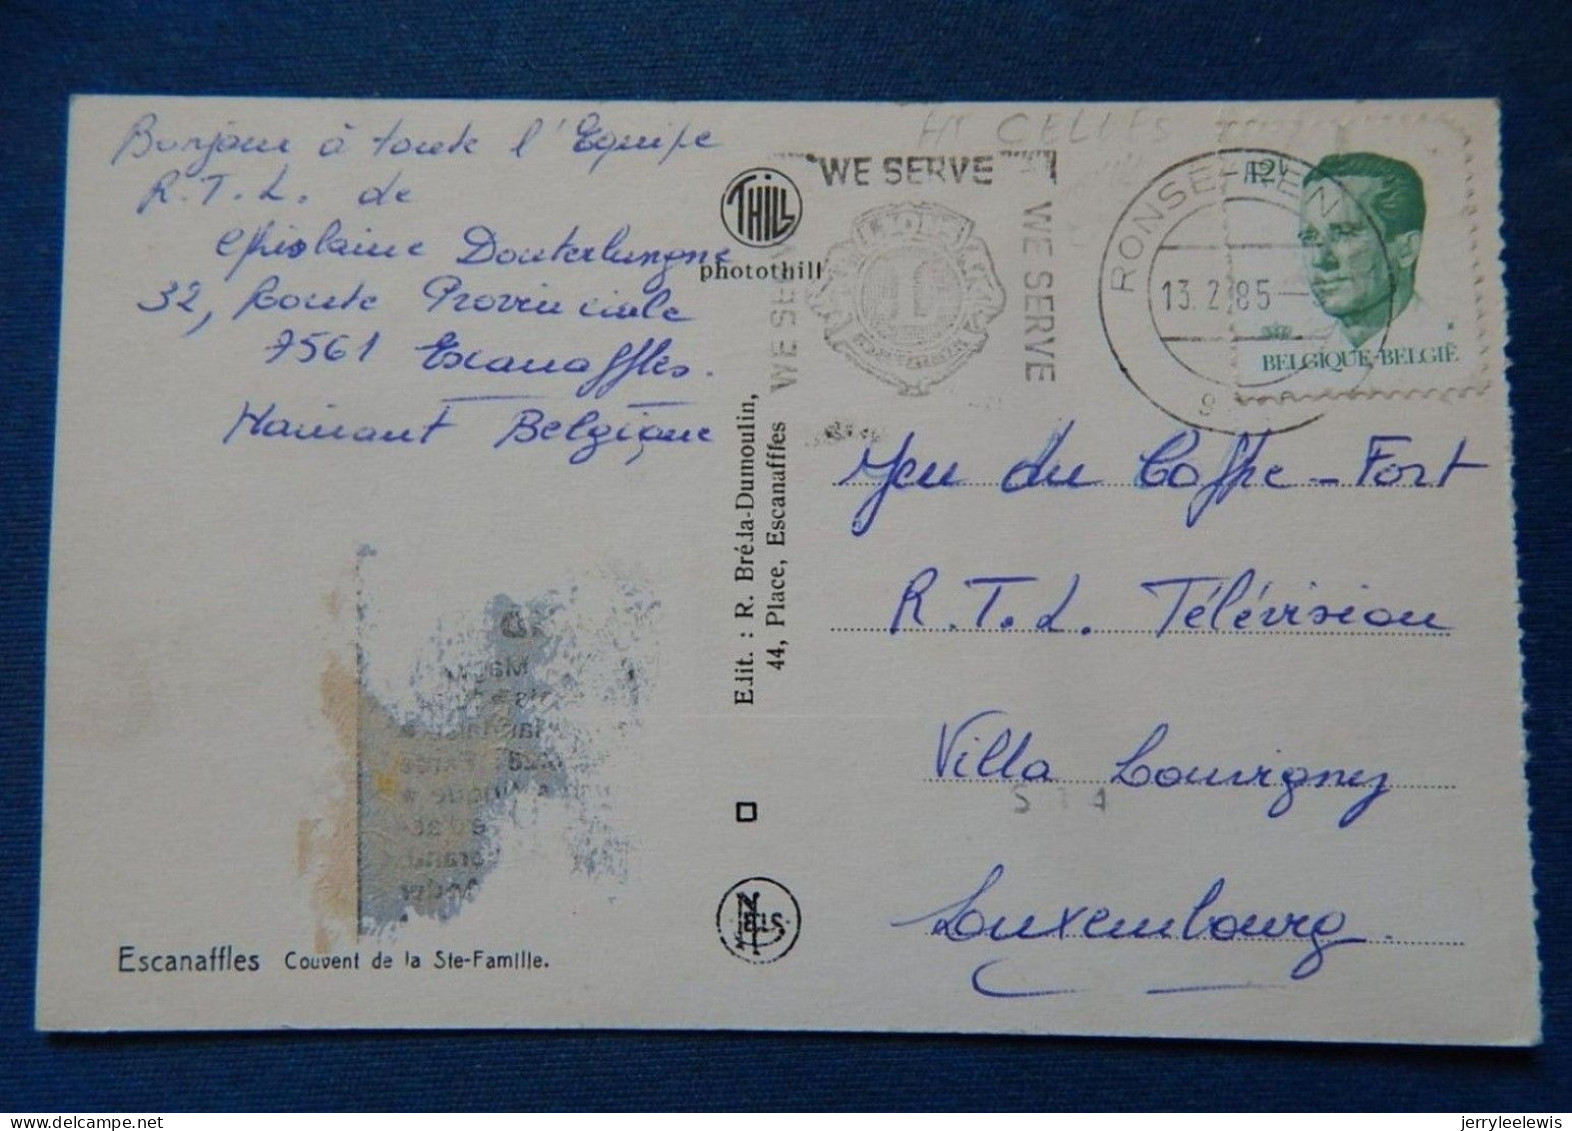 Bonjour à toute l'Equipe
R.T.L. de
Ghislaine Douterlungne
32, Route Provinciale
7561 Escanaffles.
Hainaut Belgique
THILL
photothill
Edit. : R. Bréda-Dumoulin,
44, Place, Escanaffles
NELS
Escanaffles Couvent de la Ste-Famille.
WE SERVE
WE SERVE
WE SERVE
CELLES
RONSE-RENAIX
13.2.85
12F
BELGIQUE-BELGIË
Jeu du Coffre-Fort
R.T.L. Télévision
Villa Louvigny
Luxembourg.
jerryleelewis